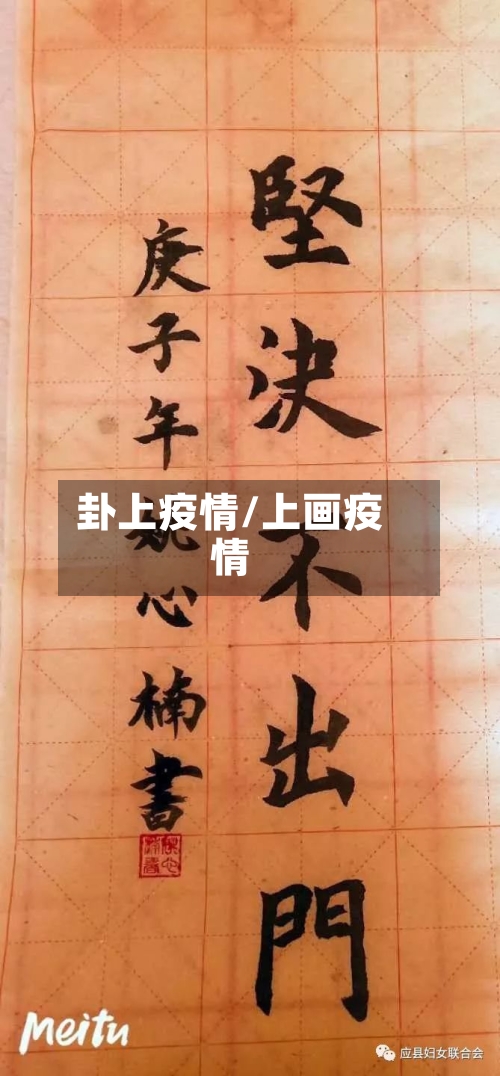 堅決不出門
庚子年
心楠書
卦上疫情/上画疫
情
Meitu
应县妇女联合会